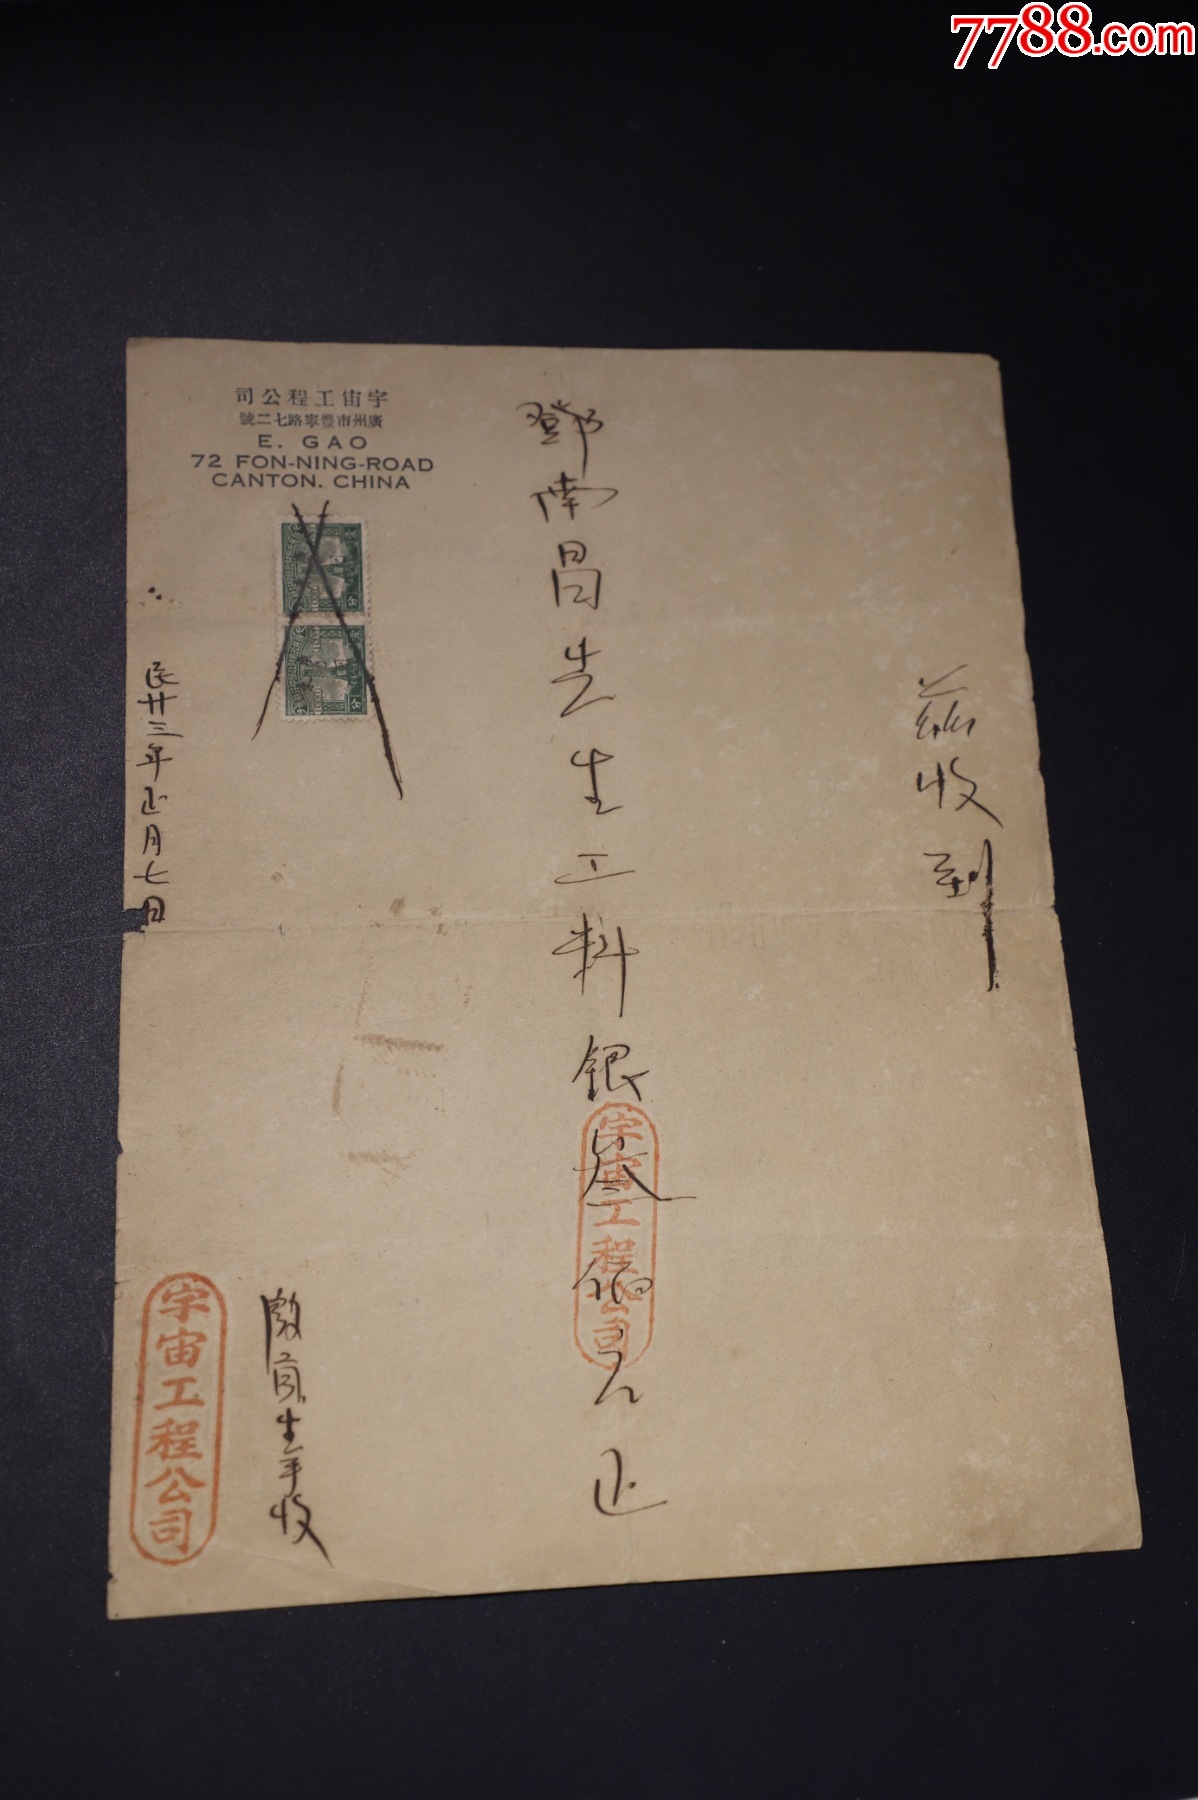 7788.com
宇宙工程公司
廣州市豐寧路七二號
E. GAO
72 FON-NING-ROAD
CANTON. CHINA
茲收到
鄧南昌先生工料銀叁佰元正
宇宙工程公司
生手收
民廿三年正月七日
宇宙工程公司
分
分